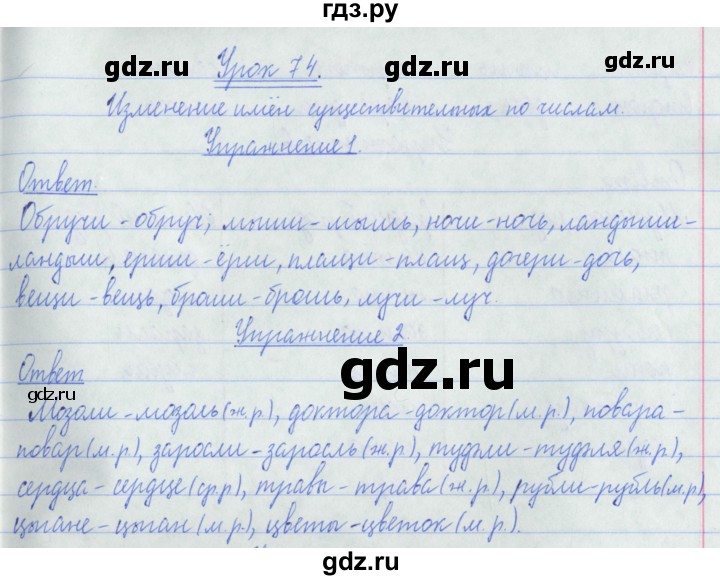 гдз.ру
gdz.ru gdz.ru
Урок 74.
Изменение имён существительных по числам.
Упражнение 1.
Ответ.
Обручи - обруч, мыши - мышь, ночи - ночь, ландыши -
ландыш, ерши - ёрш, плащи - плащ, дочери - дочь,
вещи - вещь, броши - брошь, лучи - луч.
Упражнение 2.
Ответ
gdz.ru gdz.ru
Мозоли - мозоль (ж.р.), доктора - доктор (м.р.), повара -
повар (м.р.), заросли - заросль (ж.р.), туфли - туфля (ж.р.),
сердца - сердце (ср.р), травы - трава (ж.р.), рубли - рубль (м.р),
цыгане - цыган (м.р.), цветы - цветок (м.р.).
gdz.ru gdz.ru